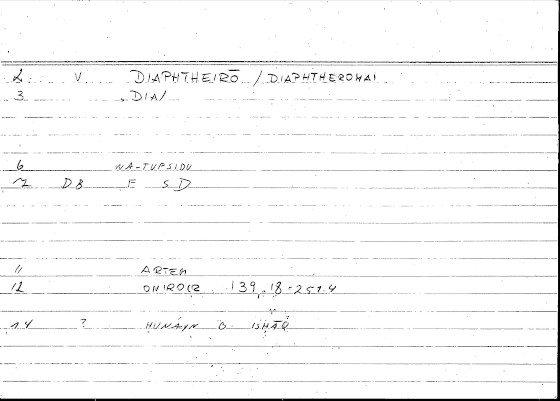 2 V DIAPHTHEIRŌ / DIAPHTHEROMAI
3 DIA/
6 WA-TUFSIDU
7 DB F SD
11 ARTEM
12 ONIROCR 139,18-251.4
14 ? HUNAYN B. ISḤĀQ